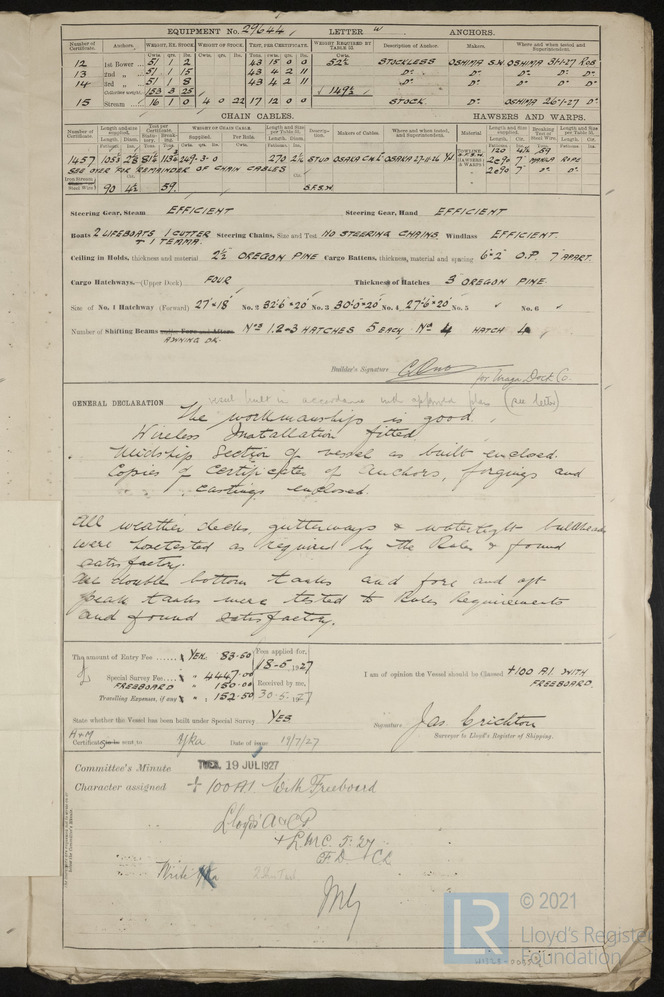 EQUIPMENT No. 29644 LETTER w ANCHORS.
Number of Certificate. Anchors. WEIGHT, EX. STOCK. WEIGHT OF STOCK. TEST, PER CERTIFICATE. WEIGHT REQUIRED BY TABLE 53. Description of Anchor. Makers. Where and when tested and Superintendent.
12 1st Bower 51 1 2 43 15 0 0 52½ STOCKLESS OSHIMA S.W. OSHIMA 31-1-27
13 2nd „ 51 1 15 43 4 2 11 Do. Do. Do. Do. Do.
14 3rd „ 51 1 8 43 4 2 11 Do. Do. Do. Do. Do.
Collective weight 153 3 25 149½
15 Stream 16 1 0 4 0 22 17 12 0 0 STOCK. Do. OSHIMA 26-1-27 Do.
CHAIN CABLES. HAWSERS AND WARPS.
Number of Certificate. Length and size supplied. Test per Certificate. WEIGHT OF CHAIN CABLE. Length and Size per Table 53. Description. Makers of Cables. Where and when tested, and Superintendent. Material. Length and Size supplied. Breaking Test of Steel Wire. Length and Size per Table 53.
1457 249-3-0 270 STUD OSAKA OSAKA 27-11-26
SEE OVER FOR REMAINDER OF CHAIN CABLES
TOWLINE 120 4½ 59
HAWSERS & WARPS 2@90 7" MANLA ROPE
" 2@90 7" Do. Do.
Iron Stream Steel Wire 90 4½ 59. S.F.S.W.
Steering Gear, Steam EFFICIENT Steering Gear, Hand EFFICIENT
Boats 2 LIFEBOATS 1 CUTTER + 1 TEMMA. Steering Chains, Size and Test NO STEERING CHAINS. Windlass EFFICIENT.
Ceiling in Holds, thickness and material 2½ OREGON PINE Cargo Battens, thickness, material and spacing 6"×2" O.P. 7" APART.
Cargo Hatchways.—(Upper Deck) FOUR Thickness of Hatches 3 OREGON PINE.
Size of No. 1 Hatchway (Forward) 27'×18' No. 2 32'6"×20' No. 3 30'0"×20' No. 4 27'6"×20' No. 5 No. 6
Number of Shifting Beams AWNING DK. Nos 1.2&3 HATCHES 5 EACH, No 4 HATCH 4
Builder's Signature for Uraga Dock Co.
GENERAL DECLARATION vessel built in accordance with approved plans (see letter)
The workmanship is good,
Wireless Installation fitted
Midship Section of vessel as built enclosed.
Copies of Certificates of anchors, forgings and
castings enclosed.
All weather decks, gutterways & watertight bulkheads
were hosetested as required by the Rules & found
satisfactory.
All double bottom tanks and fore and aft
peak tanks were tested to Rules Requirements
and found satisfactory.
The amount of Entry Fee YEN. 83.50 Fees applied for, 18-5-1927
Special Survey Fee 4447.00
FREEBOARD 150.00 Received by me,
Travelling Expenses, if any 152.50 30-5-1927
I am of opinion the Vessel should be Classed +100 A1. WITH FREEBOARD.
State whether the Vessel has been built under Special Survey YES
Signature Jas Crichton
Surveyor to Lloyd's Register of Shipping.
H+M Certificate sent to Yka Date of issue 19/7/27
Committee's Minute TUES. 19 JUL 1927
Character assigned + 100 A1 With Freeboard
Lloyd's A & CP
+ LMC 5.27
FD CL
Write Yka
© 2021
LR Lloyd's Register
Foundation